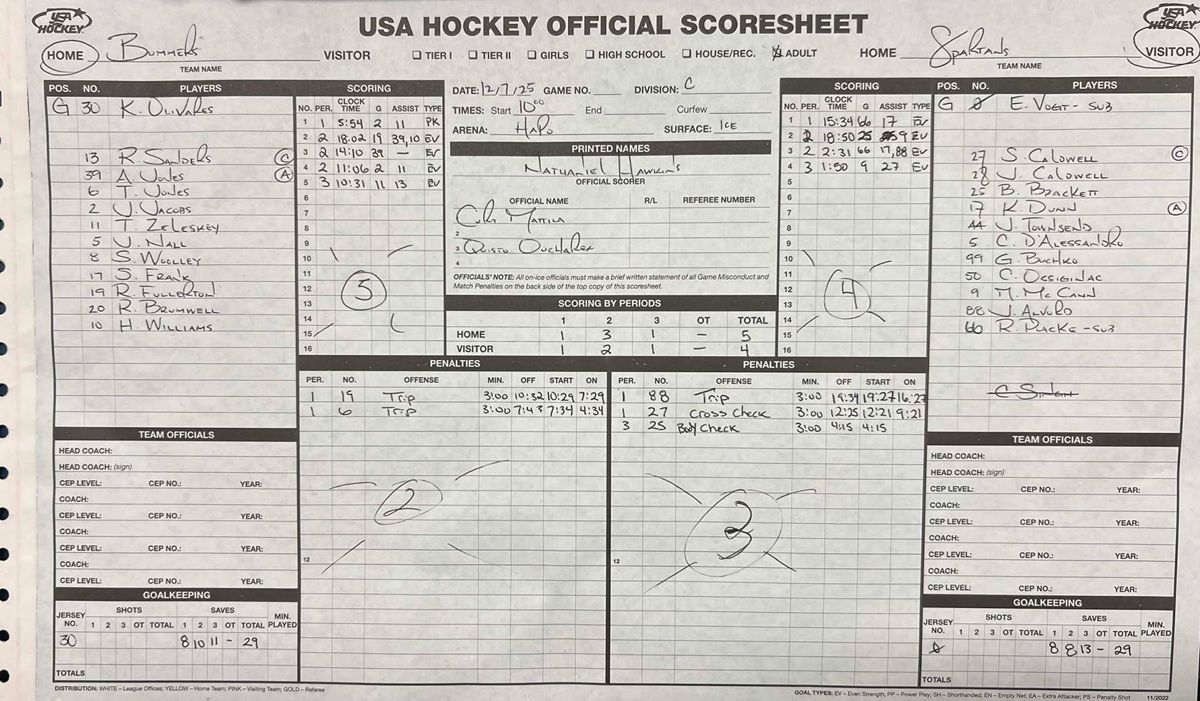 USA HOCKEY OFFICIAL SCORESHEET
USA HOCKEY
USA HOCKEY
HOME Bummers VISITOR ☐ TIER I ☐ TIER II ☐ GIRLS ☐ HIGH SCHOOL ☐ HOUSE/REC. ☒ ADULT HOME Spartans VISITOR
TEAM NAME
TEAM NAME
POS. NO. PLAYERS
G 30 K. Olivares
13 R. Sanders C
39 A. Jones A
6 T. Jones
2 J. Jacobs
11 T. Zeleskey
5 J. Nall
8 S. Woolley
17 S. Frank
19 R. Fullerton
20 R. Brumwell
10 H. Williams
SCORING
NO. PER. CLOCK TIME G ASSIST TYPE
1 1 5:54 2 11 PK
2 2 18:02 19 39,10 EV
3 2 14:10 39 — EV
4 2 11:06 2 11 EV
5 3 10:31 11 13 EV
6
7
8
9
10
11
12
13
14
15
16
5
DATE: 12/7/25 GAME NO. DIVISION: C
TIMES: Start 10:00 End Curfew
ARENA: HAPO SURFACE: ICE
PRINTED NAMES
Nathaniel Hawkins
OFFICIAL SCORER
OFFICIAL NAME R/L REFEREE NUMBER
Mattila
2
3
4
OFFICIALS' NOTE: All on-ice officials must make a brief written statement of all Game Misconduct and
Match Penalties on the back side of the top copy of this scoresheet.
SCORING BY PERIODS
1 2 3 OT TOTAL
HOME 1 3 1 — 5
VISITOR 1 2 1 — 4
SCORING
NO. PER. CLOCK TIME G ASSIST TYPE
1 1 15:34 66 17 EV
2 2 18:50 25 9 EV
3 2 2:31 66 17,88 EV
4 3 1:50 9 27 EV
5
6
7
8
9
10
11
12
13
14
15
16
4
POS. NO. PLAYERS
G 0 E. Vogt - SUB
27 S. Caldwell C
28 J. Caldwell
25 B. Brackett
17 K. Dunn A
44 J. Townsend
5 C. D'Alessandro
99 G. Buchko
50 C. Ossiginac
9 M. McCann
88 J. Alvoro
66 R. Packe - SUB
PENALTIES
PER. NO. OFFENSE MIN. OFF START ON
1 19 Trip 3:00 10:32 10:29 7:29
1 6 Trip 3:00 7:43 7:34 4:34
2
12
PENALTIES
PER. NO. OFFENSE MIN. OFF START ON
1 88 Trip 3:00 19:34 19:27 16:27
1 27 Cross Check 3:00 12:25 12:21 9:21
3 25 Body Check 3:00 4:15 4:15
3
12
TEAM OFFICIALS
HEAD COACH:
HEAD COACH: (sign)
CEP LEVEL: CEP NO.: YEAR:
COACH:
CEP LEVEL: CEP NO.: YEAR:
COACH:
CEP LEVEL: CEP NO.: YEAR:
COACH:
CEP LEVEL: CEP NO.: YEAR:
GOALKEEPING
JERSEY NO. SHOTS 1 2 3 OT TOTAL SAVES 1 2 3 OT TOTAL MIN. PLAYED
30 8 10 11 - 29
TOTALS
TEAM OFFICIALS
HEAD COACH:
HEAD COACH: (sign)
CEP LEVEL: CEP NO.: YEAR:
COACH:
CEP LEVEL: CEP NO.: YEAR:
COACH:
CEP LEVEL: CEP NO.: YEAR:
COACH:
CEP LEVEL: CEP NO.: YEAR:
GOALKEEPING
JERSEY NO. SHOTS 1 2 3 OT TOTAL SAVES 1 2 3 OT TOTAL MIN. PLAYED
0 8 8 13 - 29
TOTALS
DISTRIBUTION: WHITE – League Offices; YELLOW – Home Team; PINK – Visiting Team; GOLD – Referee
GOAL TYPES: EV – Even Strength, PP – Power Play, SH – Shorthanded, EN – Empty Net; EA – Extra Attacker, PS – Penalty Shot 11/2022